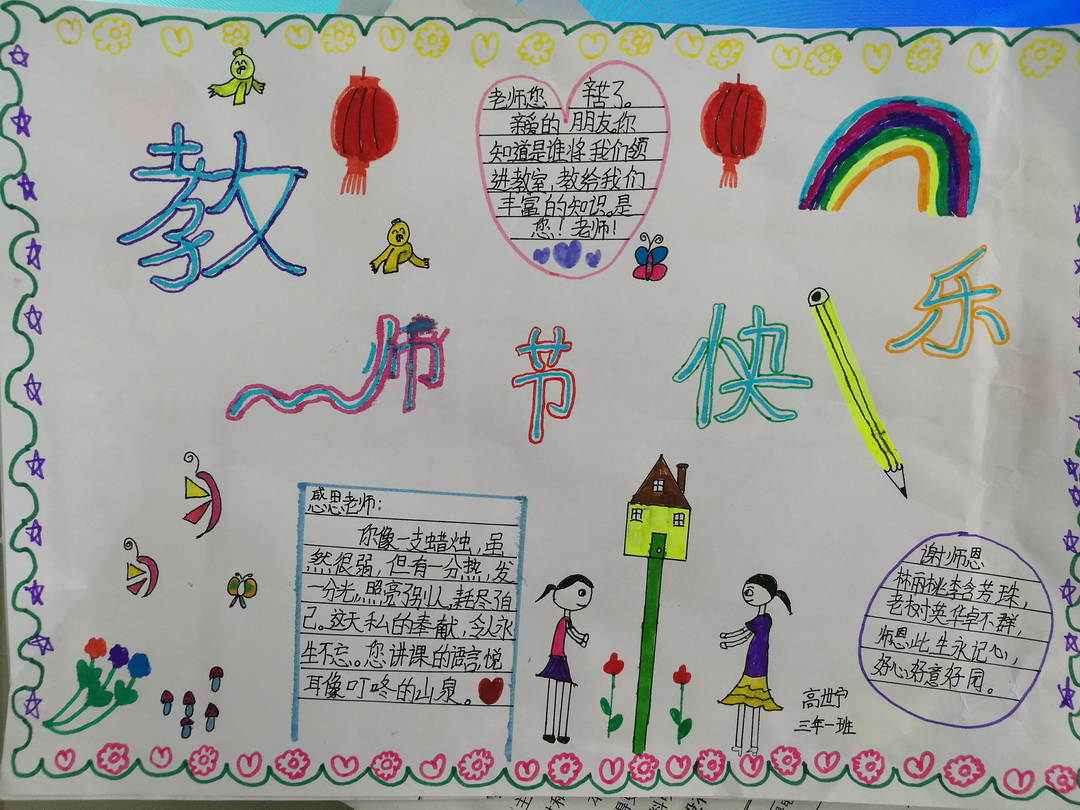 教师节快乐
老师您 辛苦了。
亲爱的朋友。你
知道是谁将我们领
进教室,教给我们
丰富的知识。是
您!老师!
感恩老师:
你像一支蜡烛,虽
然很弱,但有一分热,发
一分光,照亮了别人,耗尽了自
己。这无私的奉献,令人永
生不忘。您讲课的语言,悦
耳像叮咚的山泉。
谢师恩
林丽桃李含芳珠,
老树英华卓不群,
师恩此生永记心,
好心好意好同。
高世宁
三年一班